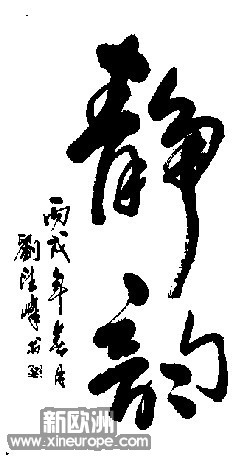 静韵
丙戌年春月
劉
新欧洲
www.xineurope.com